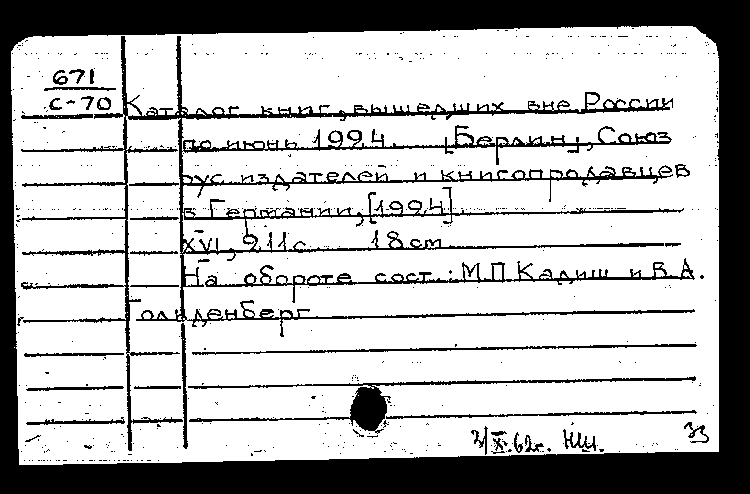 671
С-70 Каталог книг, вышедших вне России
по июнь 1924. [Берлин], Союз
рус. издателей и книгопродавцев
в Германии, [1924].
XVI, 211 с. 18 см
На обороте сост.: М.П. Кадиш и В.А.
Гольденберг
2/X.62г. НШ.